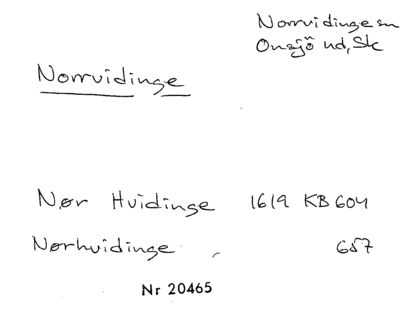 Norrvidinge sn
Onsjö hd, Sk
Norrvidinge
Nør Hvidinge 1619 KB 604
Nørhvidinge 657
Nr 20465